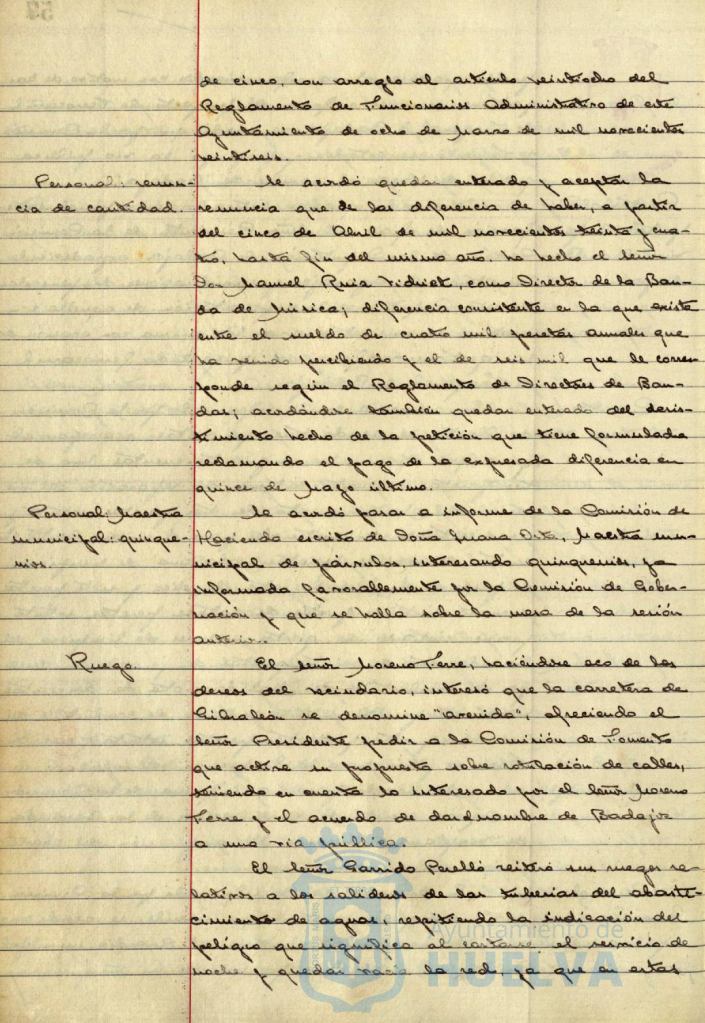 de cinco, con arreglo al artículo veintiocho del
Reglamento de Funcionarios Administrativo de este
Ayuntamiento de ocho de Marzo de mil novecientos
veintiseis.
Personal: renun-
cia de cantidad.
Se acordó quedar enterado y aceptar la
renuncia que de las diferencia de haber, a partir
del cinco de Abril de mil novecientos treinta y cua-
tro, hasta fin del mismo año, ha hecho el señor
Don Manuel Ruiz Vidriet, como Director de la Ban-
da de Música; diferencia consistente en la que existe
entre el sueldo de cuatro mil pesetas anuales que
ha venido percibiendo y el de seis mil que le corres-
ponde según el Reglamento de Directores de Ban-
das; acordándose también quedar enterado del desis-
timiento hecho de la petición que tiene formulada
reclamando el pago de la expresada diferencia en
quince de Mayo último.
Personal: Maestra
municipal: quinque-
nios.
Se acordó pasar a informe de la Comisión de
Hacienda escrito de Doña Juana Maestra mu-
nicipal de párvulos, interesando quinquenios, ya
informada favorablemente por la Comisión de Gober-
nación y que se halla sobre la mesa de la sesión
anterior.
Ruego.
El señor Moreno Ferre, haciéndose eco de los
deseos del vecindario, interesó que la carretera de
Gibraleón se denomine "avenida", ofreciendo el
Señor Presidente pedir a la Comisión de Fomento
que active su propuesta sobre rotulación de calles,
teniendo en cuenta lo interesado por el señor Moreno
Ferre y el acuerdo de dar nombre de Badajoz
a una vía pública.
El Señor Garrido Perelló reiteró sus ruegos re-
lativos a los salideros de las tuberías del abaste-
cimiento de aguas, repitiendo la indicación del
peligro que significa al cortarse el servicio de
noche y quedar vacía la red, ya que en estas
Ayuntamiento de
HUELVA